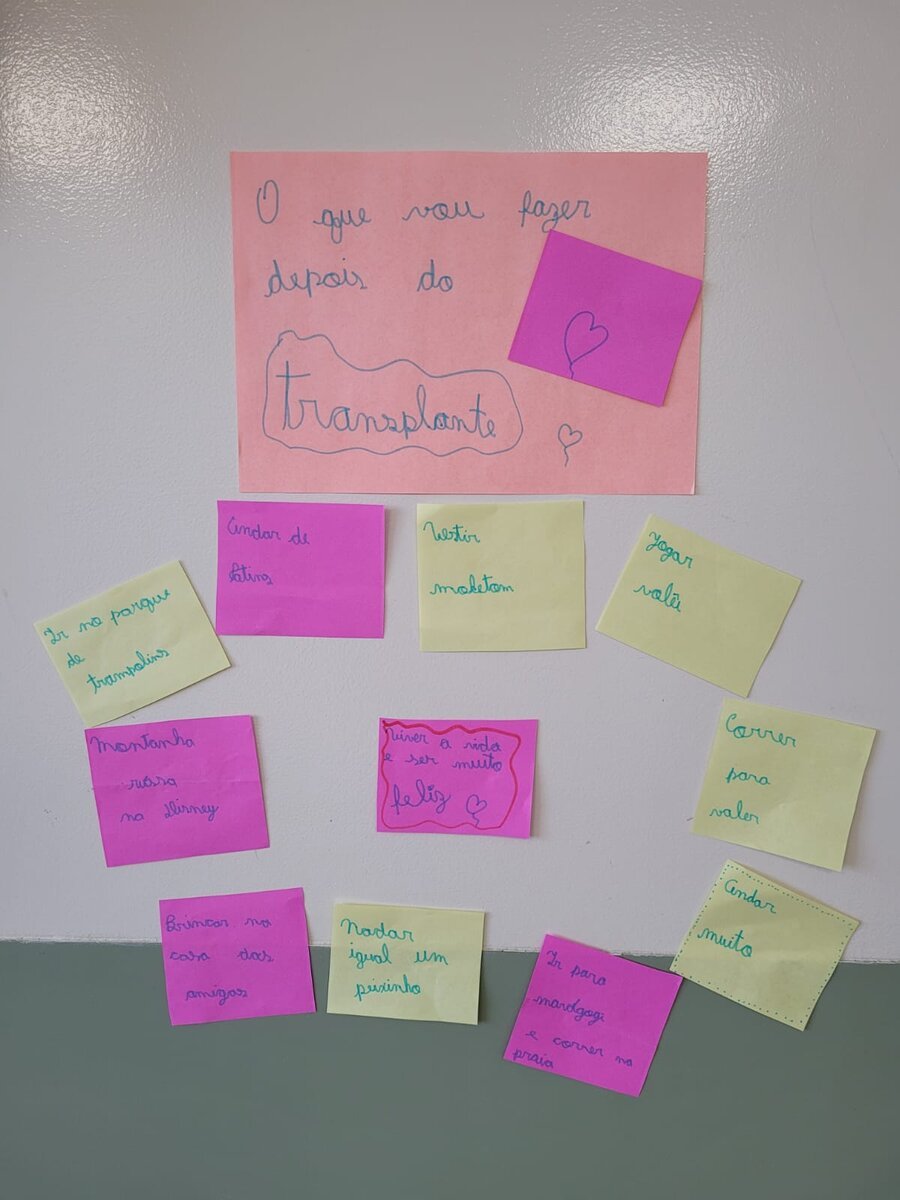 O que vou fazer
depois do
transplante
Andar de
Patins
Vestir
moletom
Jogar
volêi
Ir no parque
de
trampolins
Montanha
russa
na Disney
viver a vida
e ser muito
feliz
Correr
para
valer
Andar
muito
Brincar na
casa das
amigas
Nadar
igual um
peixinho
Ir para
maragogi
e correr na
praia